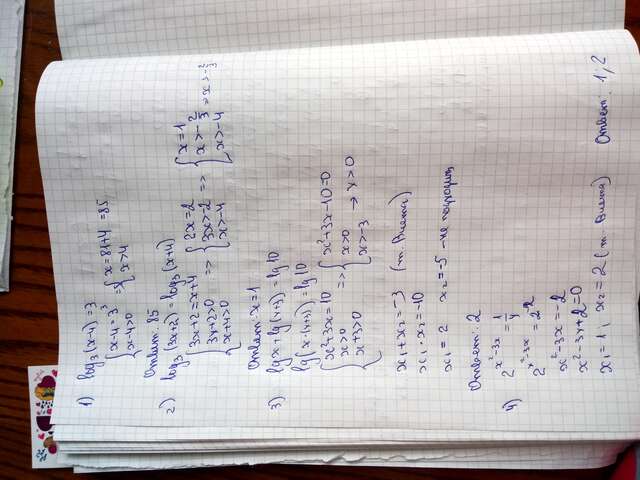 1) log₃(x-4)=3
{x-4=3³ => {x=81+4=85
x-4>0 x>4
Ответ: 85
2) log₃(3x+2)=log₃(x+4)
{3x+2=x+4 => {2x=2 => {x=1
3x+2>0 3x>-2 x>-2/3 => x>-2/3
x+4>0 x>-4 x>-4
Ответ: x=1
3) lg x+lg(x+3)=lg10
lg(x·(x+3))=lg10
{x²+3x=10 => {x²+3x-10=0
x>0 x>0
x+3>0 x>-3 → x>0
x₁+x₂=-3 (т. Виета)
x₁·x₂=-10
x₁=2 x₂=-5 - не подходит
Ответ: 2
4) 2^(x²-3x)=1/4
2^(x²-3x)=2^(-2)
x²-3x=-2
x²-3x+2=0
x₁=1; x₂=2 (т. Виета) Ответ: 1; 2